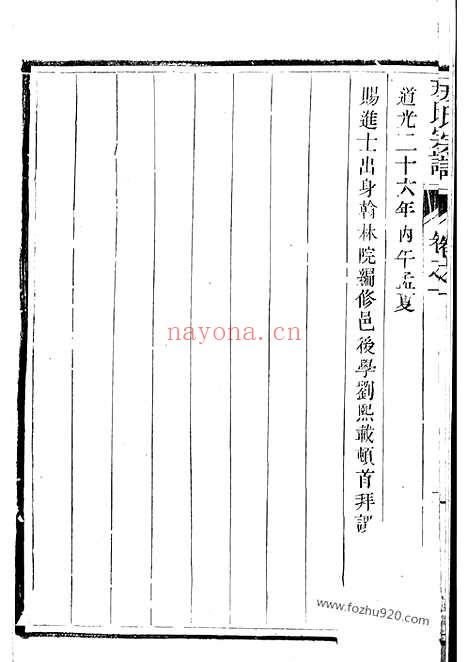 氏宗譜
卷之一
道光二十六年丙午孟夏
賜進士出身翰林院編修邑後學劉熙載頓首拜譔
nayona.cn
www.fozhu920.com